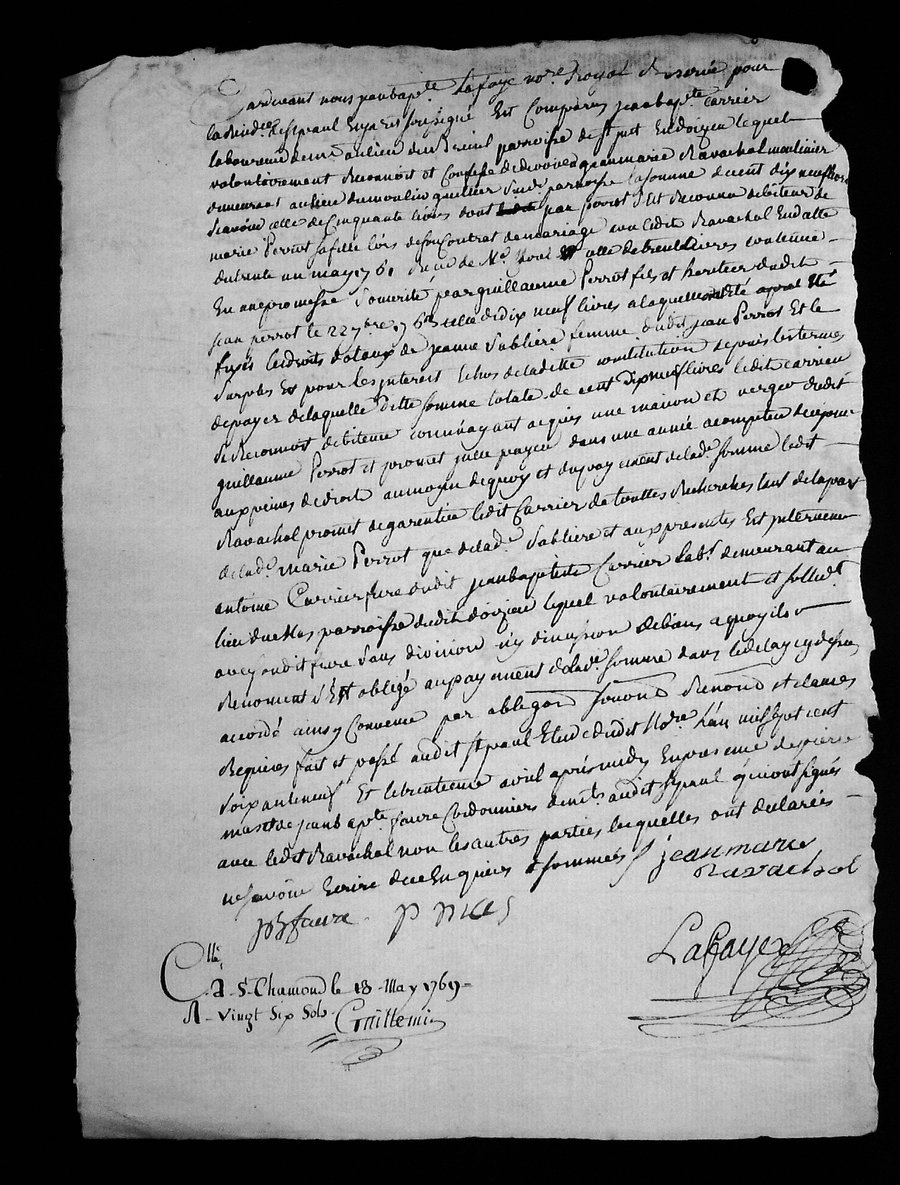 Pardevant nous jean bapte. Lafaye nore Royal Reservé pour
la Rindce. de st paul En jarest soussigné Est Comparus jean bapte. carrier
laboureur demt. au lieu du Breuil parroisse de st just En doizieu lequel
volontairement Reconnoit et Confesse debvoir a jean marie Ravachol moulinier
demeurant au lieu du moulin quellier susde. parroisse la somme de cent dix neuf livres
scavoir celle de Cinquante livres dont par perrot s'est Reconnu debiteur de
marie Perrot sa fille lors de son Contrat de mariage avec ledit Ravachol En datte
du trente un may 1761 celle de trente livres contenue
En une promesse souscritte par guillaume Perrot fils et heritier dudit
jean perrot le 22 7bre 1763 celle de dix neuf livres a laquelle ont été apres
fixés les droits dotaux de jeanne Sabliere femme dudit jean Perrot Et le
surplus Est pour les interest Echus de laditte constitution depuis les termes
de payer de laquelle ditte somme totale de cent dix neuf livres ledit carrier
se Reconnoit debiteur comme ayant acquis une maison et verger dudit
guillaume Perrot et promet icelle payer dans une année a compter de ce jour
aux peines de droit au moyen de quoy et du payement de lade. somme ledit
Ravachol promet de garentir ledit Carrier de touttes Recherches tant de la part
de lade. marie Perrot que de lade. Sabliere et aux presentes Est intervenu
antoine Carrier frere dudit jean baptiste Carrier labr. demeurant au
lieu du Mas parroisse dudit doizieu lequel volontairement et sollidt.
avec sondit frere sans division ny discussion de biens a quoy ils
Renoncent s'Est obligé au payement de lade. somme dans le delay cy dessus
accordé ainsy Convenu par obligaon soumon Renonon et clauses
Requises fait et passé audit st paul Etude dudit Nore. L'an mil sept cent
soixante neuf Et le trentieme avril après midy En presence de pierre
mas et de jean bapte. faure Cordonniers demts. audit st paul qui ont signés
avec ledit Ravachol non les autres parties lesquelles ont declarées
ne scavoir Ecrire de ce Enquises et sommées
jean marie
Ravachol
jb faure p mas
Lafaye
Clle.
C. A S. Chamond le 18 May 1769
R. Vingt Six Sols
Guillemin